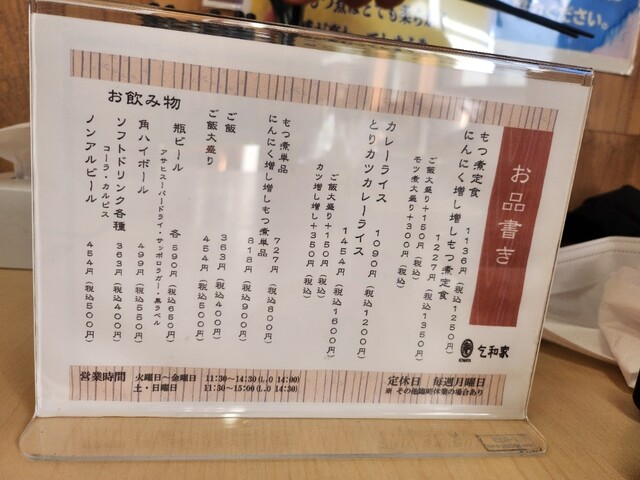 お品書き
もつ煮定食 1136円(税込1250円)
にんにく増し増しもつ煮定食
1227円(税込1350円)
ご飯大盛り+150円(税込)
モツ煮大盛り+300円(税込)
カレーライス 1090円(税込1200円)
とりカツカレーライス
1454円(税込1600円)
ご飯大盛り+150円(税込)
カツ増し増し+350円(税込)
もつ煮単品 727円(税込800円)
にんにく増し増しもつ煮単品
818円(税込900円)
ご飯 363円(税込400円)
ご飯大盛り 454円(税込500円)
お飲み物
瓶ビール 各590円(税込650円)
アサヒスーパードライ・サッポロラガー・黒ラベル
角ハイボール 499円(税込550円)
ソフトドリンク各種 363円(税込400円)
コーラ・カルピス
ノンアルビール 454円(税込500円)
営業時間 火曜日~金曜日 11:30~14:30(L.O 14:00)
土・日曜日 11:30~15:00(L.O 14:30)
定休日 毎週月曜日
※ その他臨時休業の場合あり